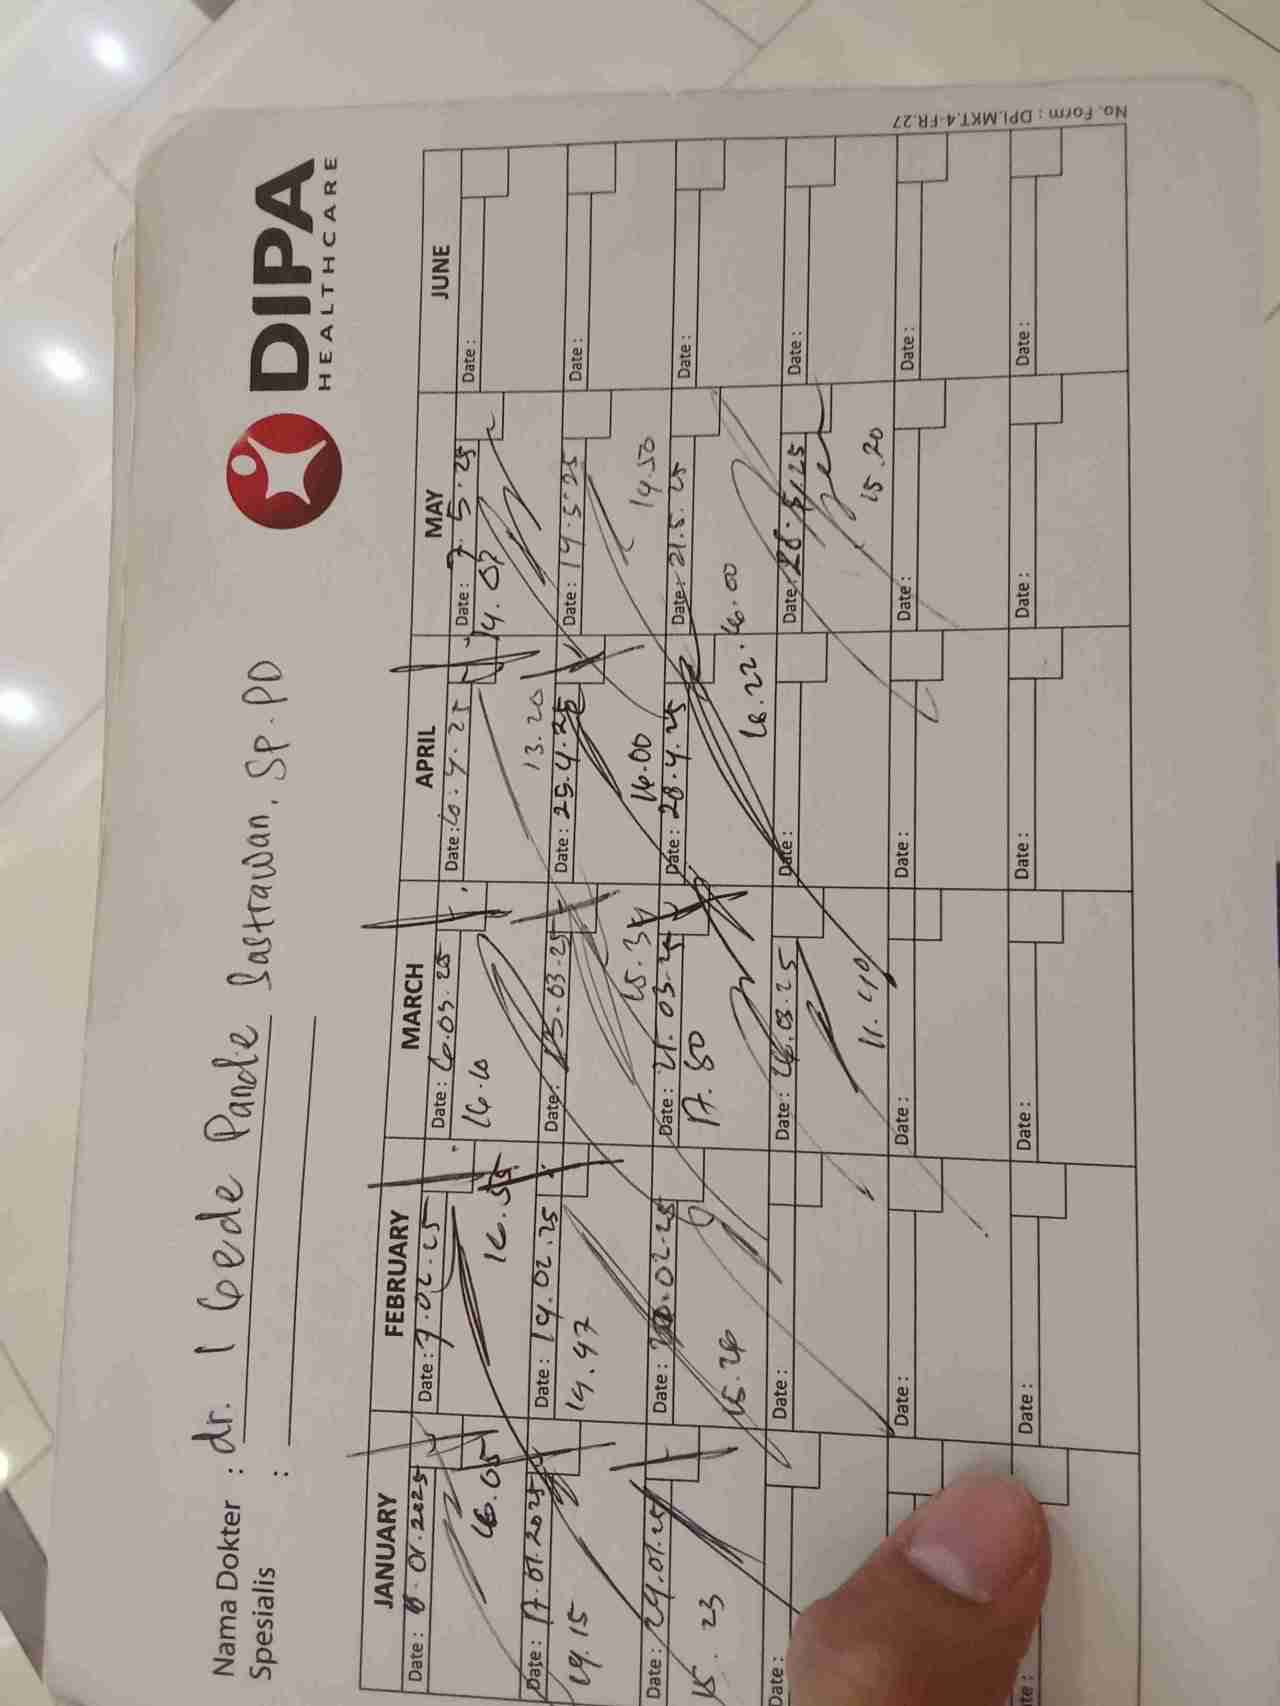 DIPA
HEALTHCARE
Nama Dokter : dr. I Gede Pande Sastrawan, Sp.PD
Spesialis :
JANUARY FEBRUARY MARCH APRIL MAY JUNE
Date : 8.01.2025 Date : 7.02.25 Date : 6.03.25 Date : 10.4.25 Date : 7.5.25 Date :
16.05 16.55 16.10 13.20 14.07
Date : 17.01.2025 Date : 14.02.25 Date : 13.03.25 Date : 25.4.25 Date : 14.5.25 Date :
14.15 14.47 15.34 16.00 14.50
Date : 24.01.25 Date : 20.02.25 Date : 21.03.25 Date : 28.4.25 Date : 21.5.25 Date :
15.23 15.26 17.50 16.22 16.00
Date : Date : Date : 26.03.25 Date : Date : 28.5.25 Date :
11.40 15.20
Date : Date : Date : Date : Date :
Date : Date : Date : Date : Date :
No. Form : DPI.MKT.4-FR.27